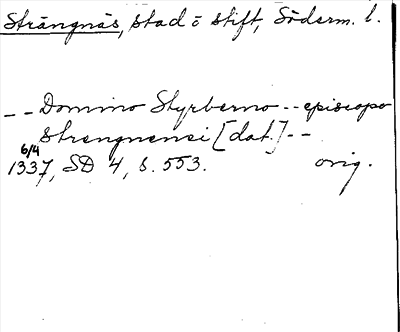 Strängnäs, stad o stift, Söderm. l.
-- Domino Styrberno -- episcopo
Strengnensi [dat.] --
6/4
1337, SD 4, s. 553. orig.